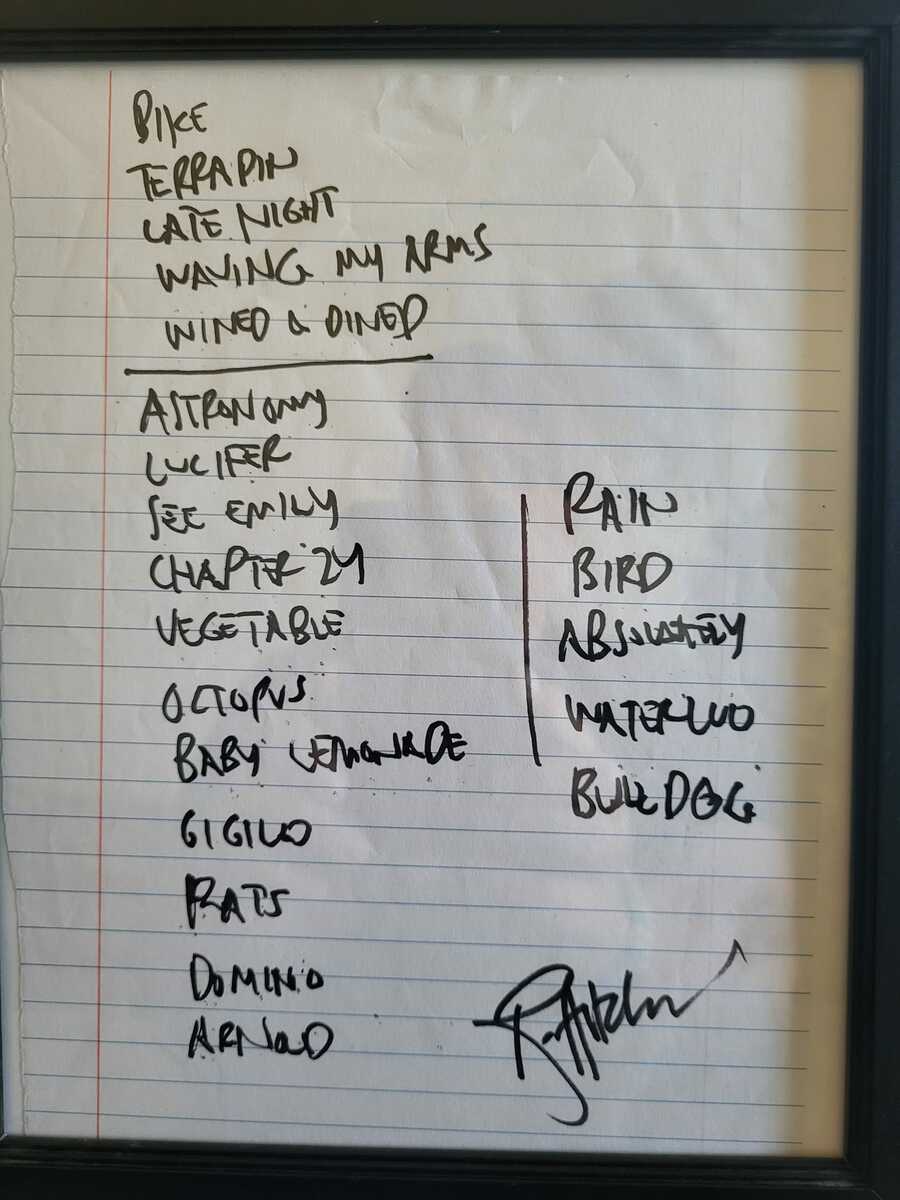 BIKE
TERRAPIN
LATE NIGHT
WAVING MY ARMS
WINED & DINED
ASTRONOMY
LUCIFER
SEE EMILY
CHAPTER 24
VEGETABLE
OCTOPUS
BABY LEMONADE
GIGILO
RATS
DOMINO
ARNOLD
RAIN
BIRD
ABSOLUTELY
WATERLOO
BULLDOG